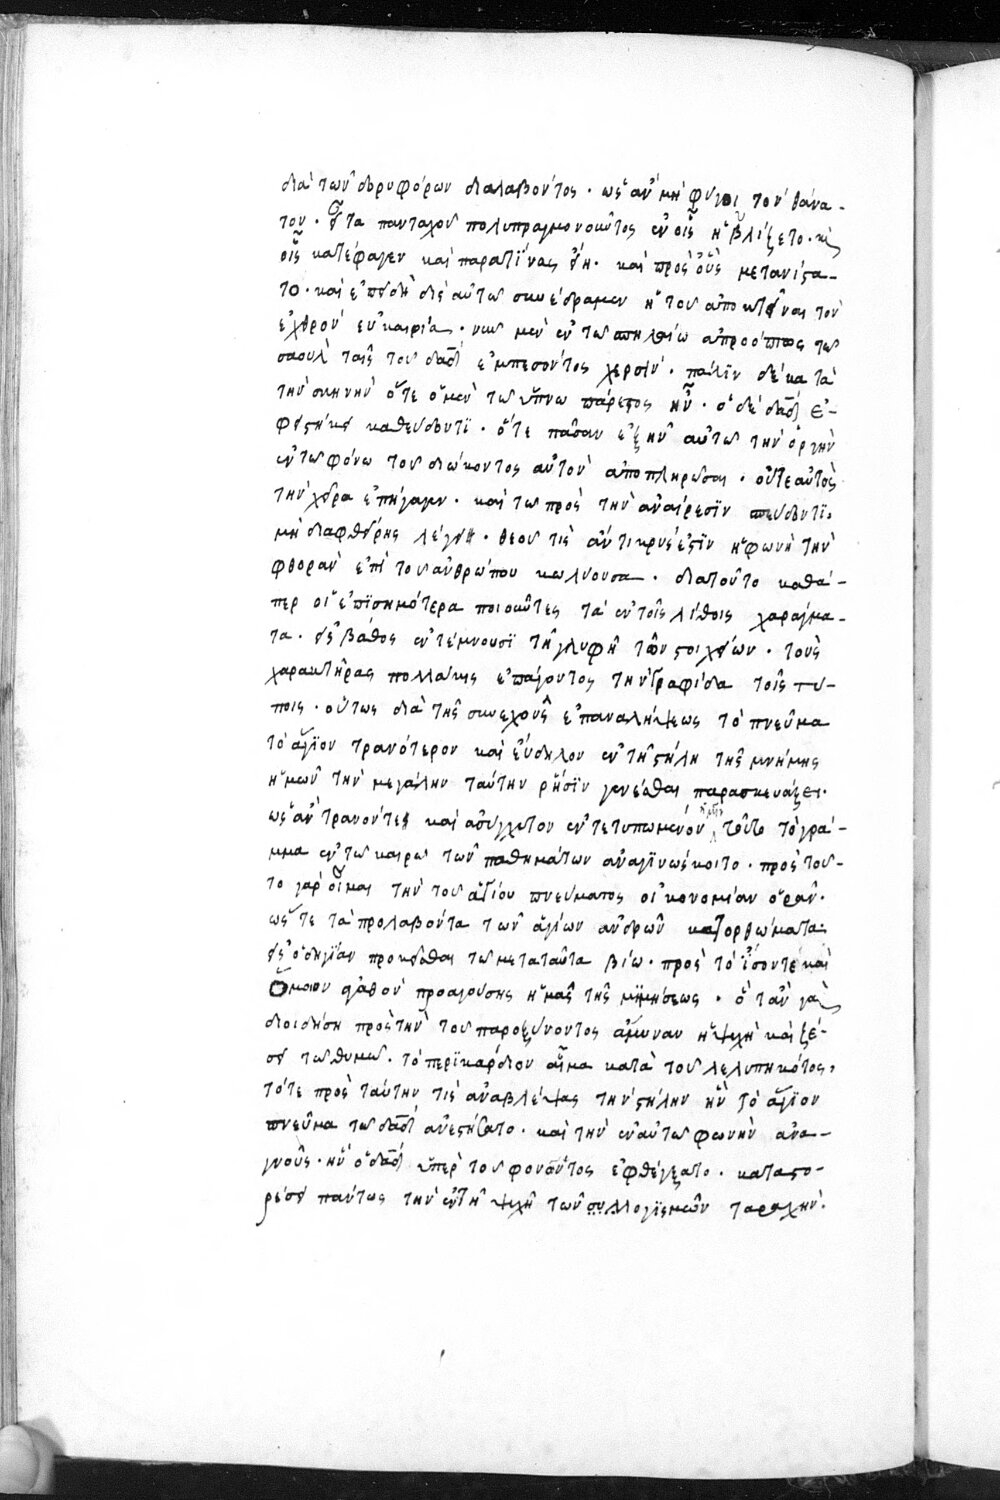 διὰ τῶν δορυφόρων διαλαβόντος · ὡς ἂν μὴ φύγοι τὸν θάνα-
τον · εἶτα πανταχοῦ πολυπραγμονοῦντος ἐν οἷς ηὐλίζετο · καὶ
οἷς κατέφαγεν καὶ παρατϊνας ἔτη · καὶ πρὸς οὓς μετανίστα-
το · καὶ ἐπειδὴ δὶς αὐτῶ συνέδραμεν ἡ τοῦ ἀποκτεῖναι τὸν
ἐχθρὸν εὐκαιρία · νῦν μὲν ἐν τῶ σπηλαίω ἀπροόπτως τοῦ
σαοὺλ ταῖς τοῦ δαδ ἐμπεσόντος χερσίν · πάλϊν δὲ κατὰ
τὴν σκηνὴν ὅτε ὁ μὲν τῶ ὕπνω πάρετος ἦν · ὁ δὲ δαδ ἐ-
φειστήκει καθεύδοντϊ · ὅτε πᾶσαν ἐξῆν αὐτῶ τὴν ὀργὴν
ἐν τῶ φόνω τοῦ διώκοντος αὐτὸν ἀποπληρῶσαι · οὔτε αὐτὸς
τὴν χεῖρα ἐπήγαγεν · καὶ τῶ πρὸς τὴν ἀναίρεσϊν σπεύδοντϊ·
μὴ διαφθείρης λέγει · θεοῦ τὶς ἀντικρύς ἐστϊν ἡ φωνὴ τὴν
φθορὰν ἐπὶ τοῦ ἀνθρώπου κωλύουσα · διατοῦτο καθά-
περ οἱ ἐπϊσημότερα ποιοῦντες τὰ ἐν τοῖς λίθοις χαράγμα-
τα · εἰς βάθος ἐντέμνουσϊ τῆ γλυφῆ τῶν στοιχείων · τοὺς
χαρακτῆρας πολλάκις ἐπάγοντος τὴν γραφίδα τοῖς τύ-
ποις · οὕτως διὰ τῆς συνεχοῦς ἐπαναλήψεως τὸ πνεῦμα
τὸ ἅγϊον τρανότερον καὶ εὔδηλον ἐν τῆ στήλη τῆς μνήμης
ἡμῶν τὴν μεγάλην ταύτην ῥῆσϊν γενέσθαι παρασκευάζει·
ὡς ἂν τρανόν τε καὶ ἀσύγχυτον ἐντετυπωμένον ἡμῖν τοῦτο τὸ γρά-
μμα ἐν τῶ καιρῶ τῶν παθημάτων ἀναγϊνώσκοιτο · πρὸς τοῦ-
το γὰρ οἶμαι τὴν τοῦ ἁγίου πνεύματος οἰκονομίαν ὁρᾶν·
ὥστε τὰ προλαβόντα τῶν ἁγίων ἀνδρῶν κατορθώματα·
εἰς ὁδηγίαν προκεῖσθαι τῶ μεταταῦτα βίω · πρὸς τὸ ἴσοντε καὶ
ὅμοιον ἀγαθὸν προαγούσης ἡμᾶς τῆς μϊμήσεως · ὅταν γὰρ
διοιδήση πρὸς τὴν τοῦ παροξύνοντος ἄμυναν ἡ ψυχὴ καὶ ζέ-
σει τῶ θυμῶ · τὸ περϊκάρδιον αἷμα κατὰ τοῦ λελυπηκότος,
τότε πρὸς ταύτην τὶς ἀναβλέψας τὴν στήλην ἣν τὸ ἅγϊον
πνεῦμα τῶ δαδ ἀνεστήσατο · καὶ τὴν ἐν αὐτῶ φωνὴν ἀνα-
γνοὺς · ἣν ὁ δαδ ὑπὲρ τοῦ φονῶντος ἐφθέγξατο · καταστο-
ρέσει πάντως τὴν ἐν τῆ ψυχῆ τῶν συλλογϊσμῶν ταραχήν·